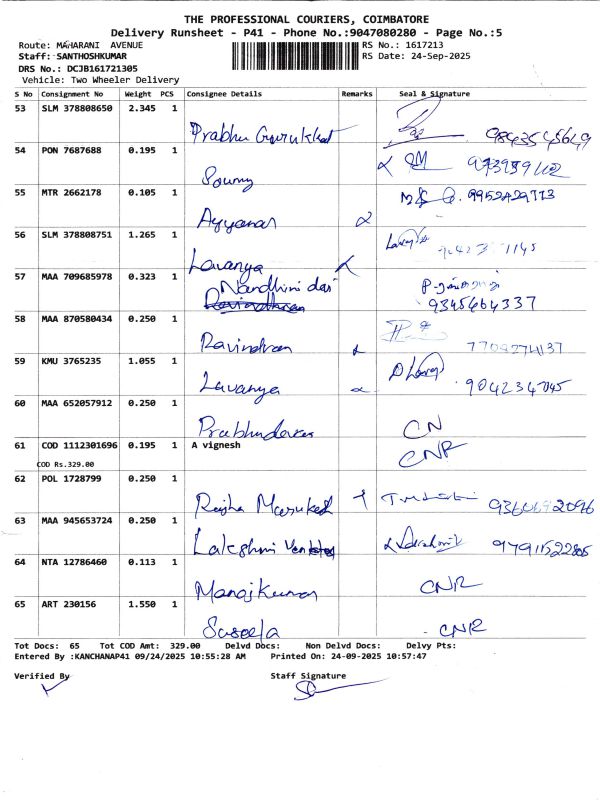 THE PROFESSIONAL COURIERS, COIMBATORE
Delivery Runsheet - P41 - Phone No.:9047080280 - Page No.:5
Route: MAHARANI AVENUE RS No.: 1617213
Staff: SANTHOSHKUMAR RS Date: 24-Sep-2025
DRS No.: DCJB161721305
Vehicle: Two Wheeler Delivery
S No Consignment No Weight PCS Consignee Details Remarks Seal & Signature
53 SLM 378808650 2.345 1
Prabhu 9843545649
54 PON 7687688 0.195 1
Sowmy
55 MTR 2662178 0.105 1
Ayyanar
56 SLM 378808751 1.265 1
Lavanya
57 MAA 709685978 0.323 1
Nandhini das
Ravindhran 9345664337
58 MAA 870580434 0.250 1
Ravindran
59 KMU 3765235 1.055 1
Lavanya
60 MAA 652057912 0.250 1
CN
61 COD 1112301696 0.195 1 A vignesh
COD Rs.329.00 CNR
62 POL 1728799 0.250 1
63 MAA 945653724 0.250 1
Lakshmi
64 NTA 12786460 0.113 1
Manojkumar CNR
65 ART 230156 1.550 1
Suseela CNR
Tot Docs: 65 Tot COD Amt: 329.00 Delvd Docs: Non Delvd Docs: Delvy Pts:
Entered By :KANCHANAP41 09/24/2025 10:55:28 AM Printed On: 24-09-2025 10:57:47
Verified By Staff Signature